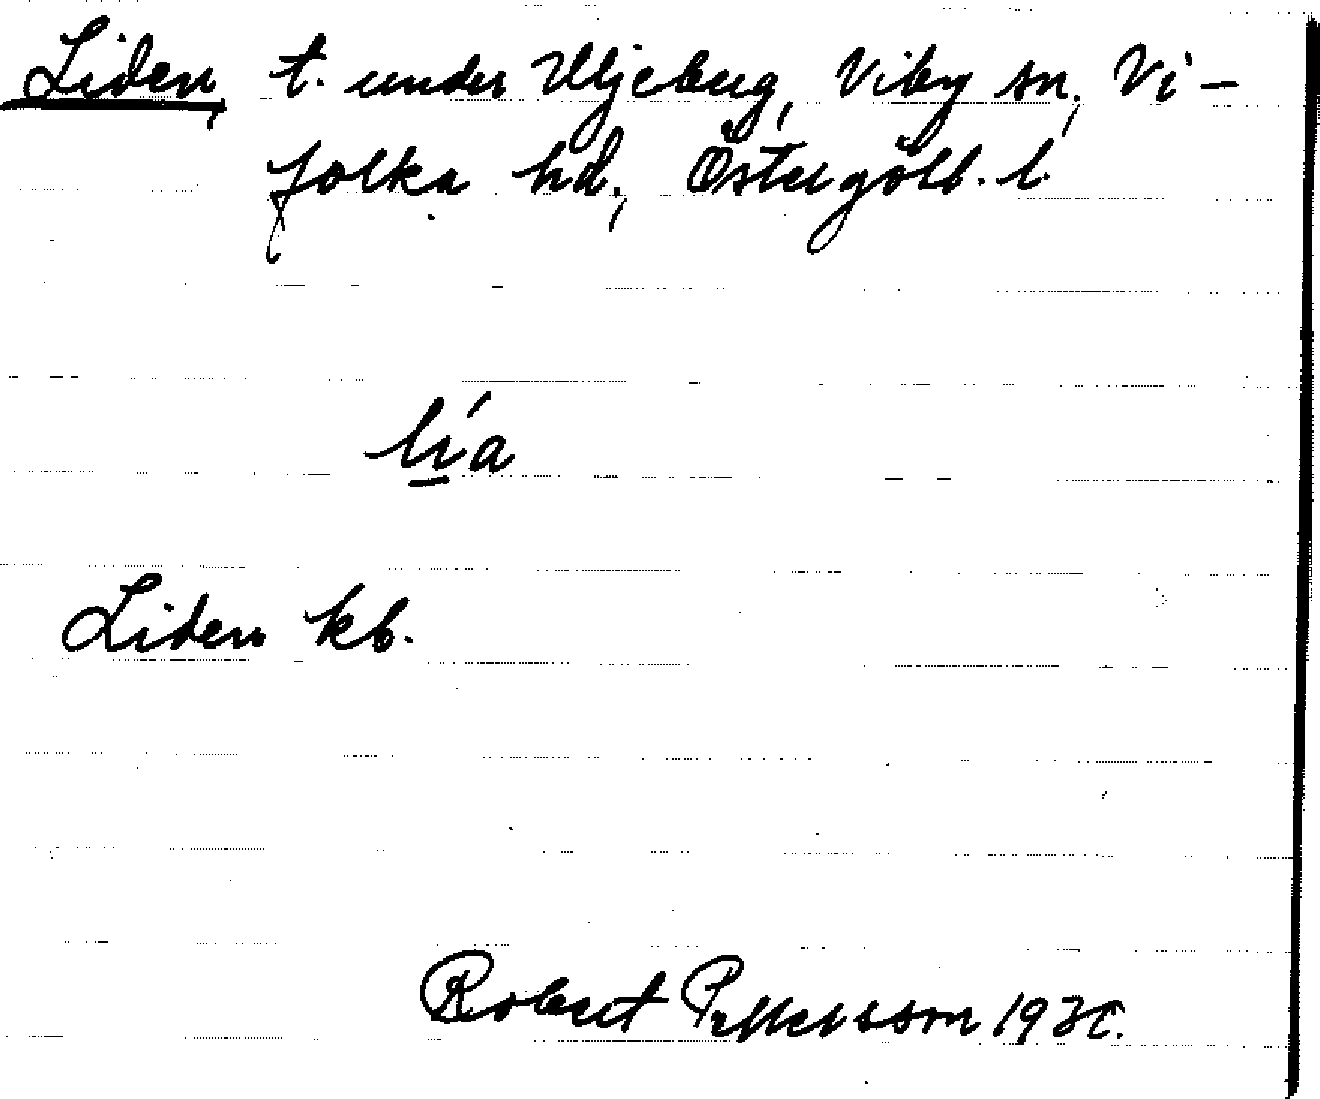 Liden, t. under Uljeberg, Viby sn, Vi-
folka hd, Östergötl. l.
lia
Liden kb.
Robert Pettersson 1930.